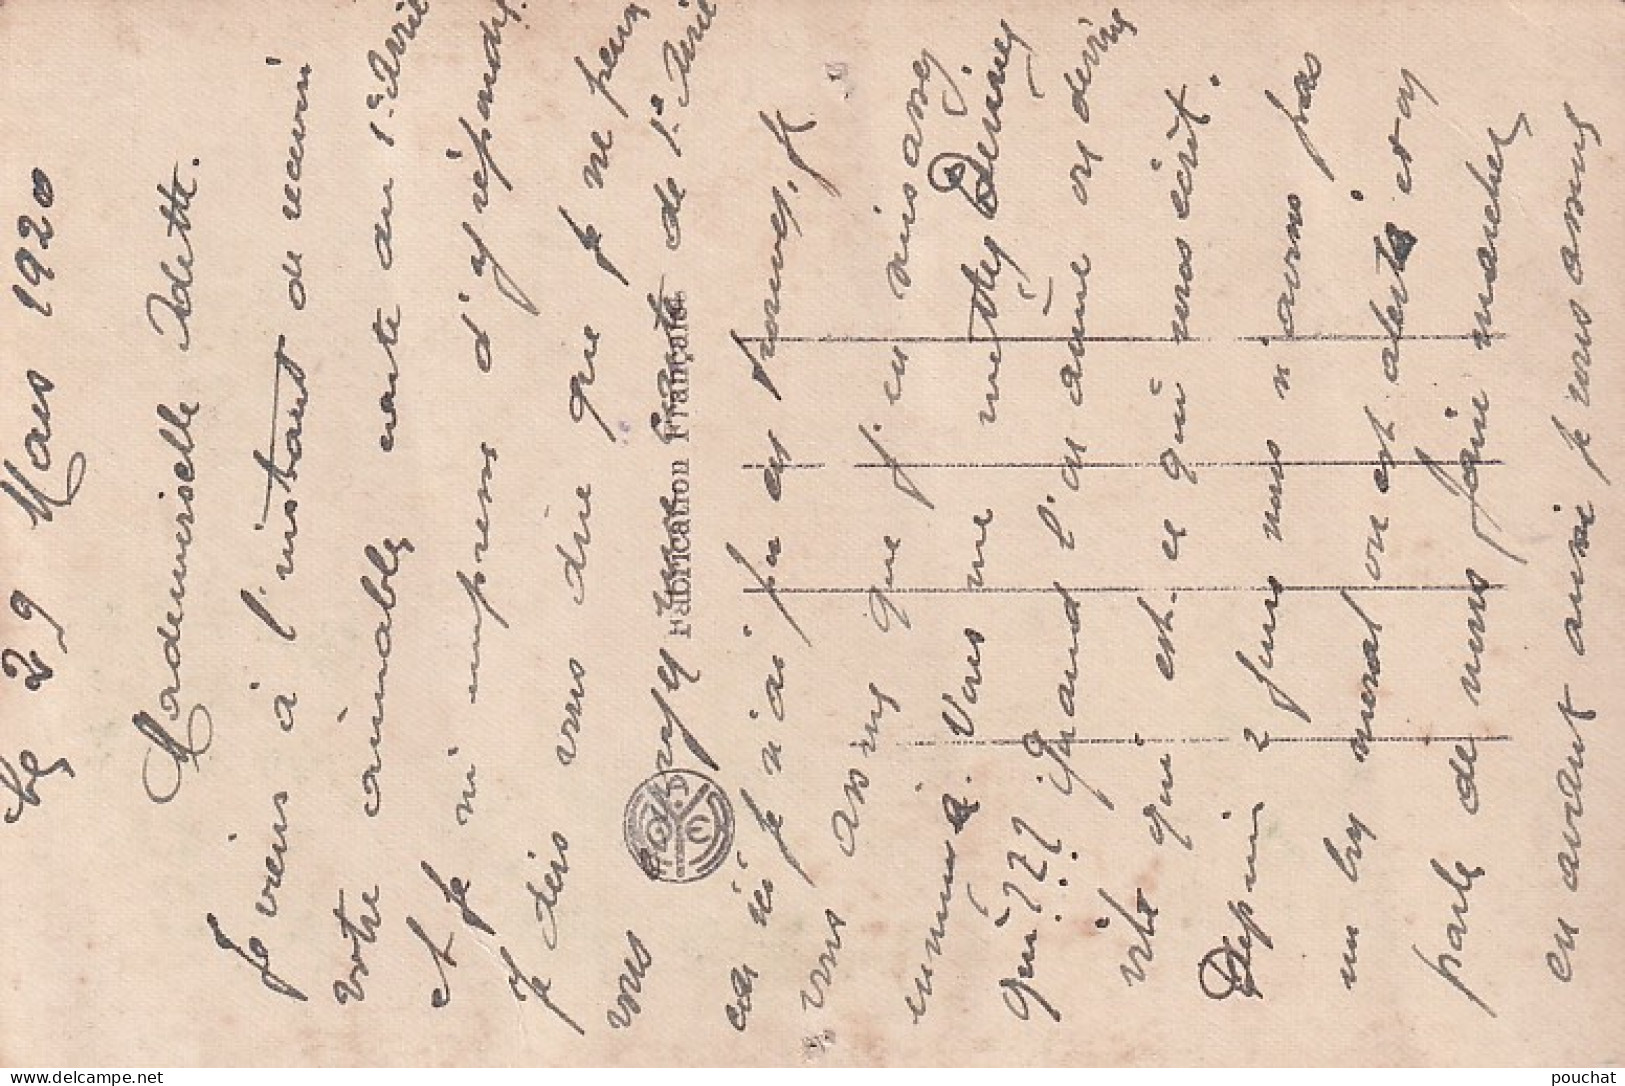 Le 29 Mars 1920
Mademoiselle Odette.
Je viens à l'instant de recevoir
votre aimable carte du 1e Avril
et je m'empresse d'y répondre.
Je dois vous dire que je ne peux
vous envoyer une carte de 1e Avril
car ici je n'ai pu en trouver. Je
vous assure que j'en suis assez
ennuyé. Vous me mettez Devinez
qui??? Quand l'on aime on devine
vite qui est-ce qui vous écrit.
Depuis 2 jours nous n'avons pas
un bon moral on est alerté et on
parle de nous faire marcher
en avant aussi je vous assure
Fabrication Française